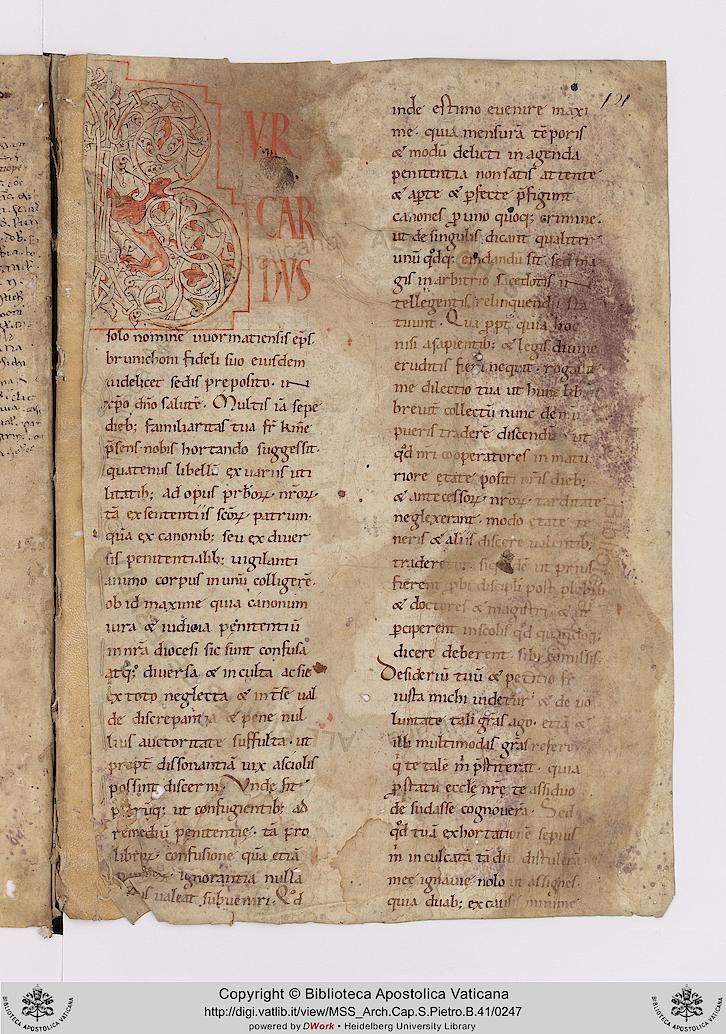 121
VR
CAR
DVS
solo nomine uuormatiensis ep̅s.
brunichoni fideli suo eiusdem
uidelicet sedis preposito. in
xp̅o dn̅o salutē. Multis iā sepe
dieb; familiaritas tua fr̅ km̅e
p̅sens nobis hortando suggessit.
quatenus libellū ex uariis uti
litatib; ad opus pr̅bō℞. nr̅o℞.
tā ex sententiis sc̅o℞. patrum.
quā ex canonib; seu ex diuer
sis penitentialib; uigilanti
animo corpus in unū colligerē.
ob id maxime quia canonum
iura & iudicia penitentiū
in nr̅a diocesi sic sunt confusa
atq; diuersa & inculta ac sic
ex toto neglecta & int̅ se ual
de discrepantia & pene nul
lius auctoritate suffulta. ut
propt̅ dissonantiā uix a sciolis
possint discerni. Vnde fit
ut confugientib; ad
remediū penitentie. tā pro
confusione quā etiā
ignorantia nullā
ualeat subueniri. Qd̅
inde estimo euenire maxi
me. quia mensurā tēporis
& modū delicti in agenda
penitentia non satis attente
& apte & p̅fecte p̅figunt
canones pro uno quoq; crimine.
ut de singulis dicant qualiter
unū qdq; em̅dandū sit. sed ma
gis in arbitrio sacerdotis in
tellegentis relinquendū sta
tuunt. Qua ppt̅ quia hoc
nisi a sapientib; & legis diuine
eruditis fieri nequit. rogauit
me dilectio tua ut hunc
breuit̅ collectū nunc demū
pueris traderē discendū. ut
qd̅ nr̅i cooperatores in matu
riore etate positi nr̅is dieb;
& antecesso℞. nr̅o℞. tarditate
neglexerant. modo etate te
neris & aliis discere uolentib;
traderetur. ut prius
fierent discipli post
& doctores & magistri. & ut
p̅ciperent in scolis qd̅ quandoq;
dicere deberent. sibi comissis.
Desideriū tuū & petitio fr̅
iusta michi uidetur & de uo
luntate tali gr̅as ago. etiā &
illi multimodas gr̅as refero
q̇ te talē m̅ p̅stiterat. quia
p̅ statu eccl̅e nr̅e te assiduo
desudasse cognouerā. Sed
qd̅ tuā exhortationē sepius
m̅ inculcatā tā diu distulerā
mee ignauie nolo ut assignes.
quia duab; ex causis minime
Copyright © Biblioteca Apostolica Vaticana
http://digi.vatlib.it/view/MSS_Arch.Cap.S.Pietro.B.41/0247
powered by DWork • Heidelberg University Library
BIBLIOTECA APOSTOLICA VATICANA
BIBLIOTECA APOSTOLICA VATICANA